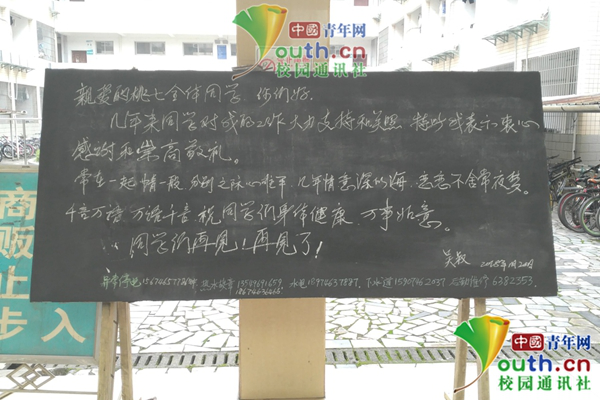 中國青年网
Youth.cn
校园通讯社
亲爱的桃七全体同学 你们好.
几年来同学对我的工作大力支持和关照 特此我表示衷心
感谢和崇高敬礼。
常在一起情一般 分别之际心难平. 几年情意深似海 恋恋不舍常夜梦.
千言万语 万语千言 祝同学们身体健康 万事如意。
同学们再见!再见了!
吴叔
水电18974637887. 下水道
6382353.
商
贩
止
步 入
中國青年网
Youth.cn
校园通讯社